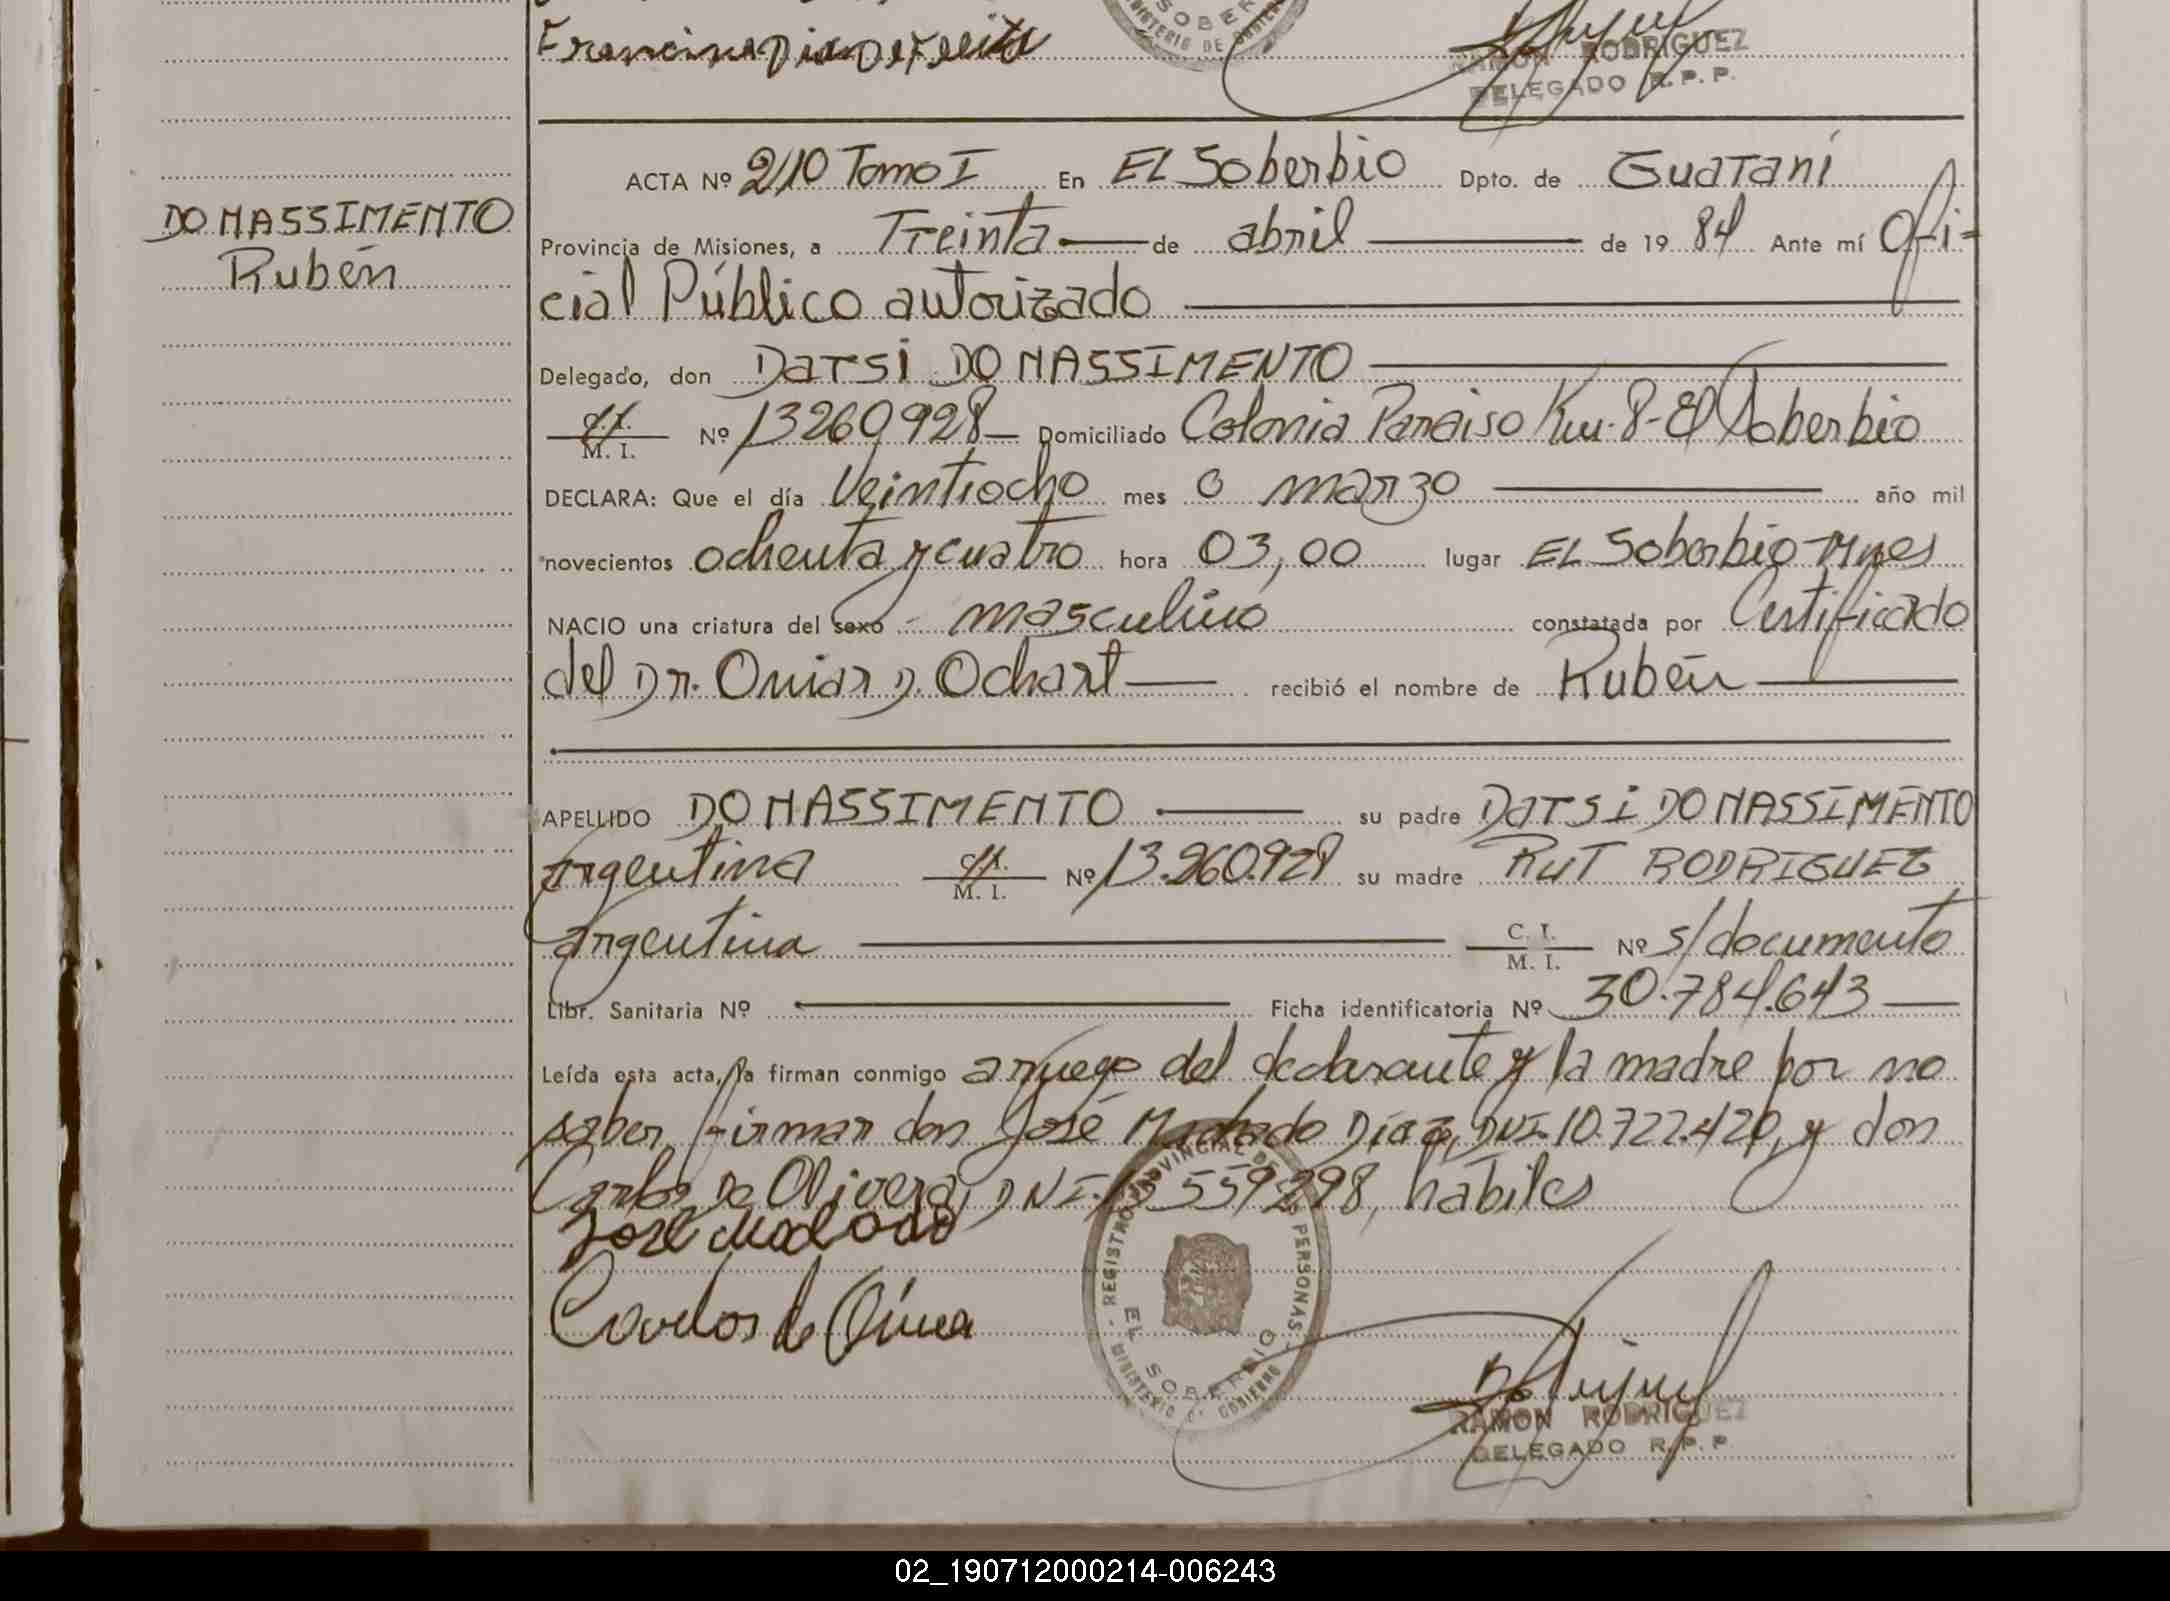 Francisca Dias De Freita
SOBER
MINISTERIO DE GOBIERNO
RAMON RODRIGUEZ
DELEGADO R. P. P.
ACTA Nº 210 Tomo I En EL Soberbio Dpto. de Guaraní
DO NASSIMENTO
Rubén
Provincia de Misiones, a Treinta de abril de 19 84 Ante mí Ofi-
cial Público autorizado
Delegado, don Darsi DO NASSIMENTO
C. I. M. I. Nº 13260928 Domiciliado Colonia Paraiso Km. 8 - El Soberbio
DECLARA: Que el día Veintiocho mes o marzo año mil
novecientos ochenta y cuatro hora 03,00 lugar EL Soberbio - Mnes
NACIO una criatura del sexo masculino constatada por Certificado
del Dr. Omar D. Ochart recibió el nombre de Rubén
APELLIDO DO NASSIMENTO su padre Darsi DO NASSIMENTO
argentina C. I. M. I. Nº 13.260.928 su madre RUT RODRIGUEZ
argentina C. I. M. I. Nº s/documento
Libr. Sanitaria Nº Ficha identificatoria Nº 30.784.643
Leída esta acta, la firman conmigo a ruego del declarante y la madre por no
saber firmar don José Machado Díaz, DNI. 10.722.420, y don
Carlos De Olivera, DNI. 13559298, habiles
José Machado
Carlos de
REGISTRO PROVINCIAL DE PERSONAS
EL SOBERBIO
MINISTERIO DE GOBIERNO
RAMON RODRIGUEZ
DELEGADO R. P. P.
02_190712000214-006243